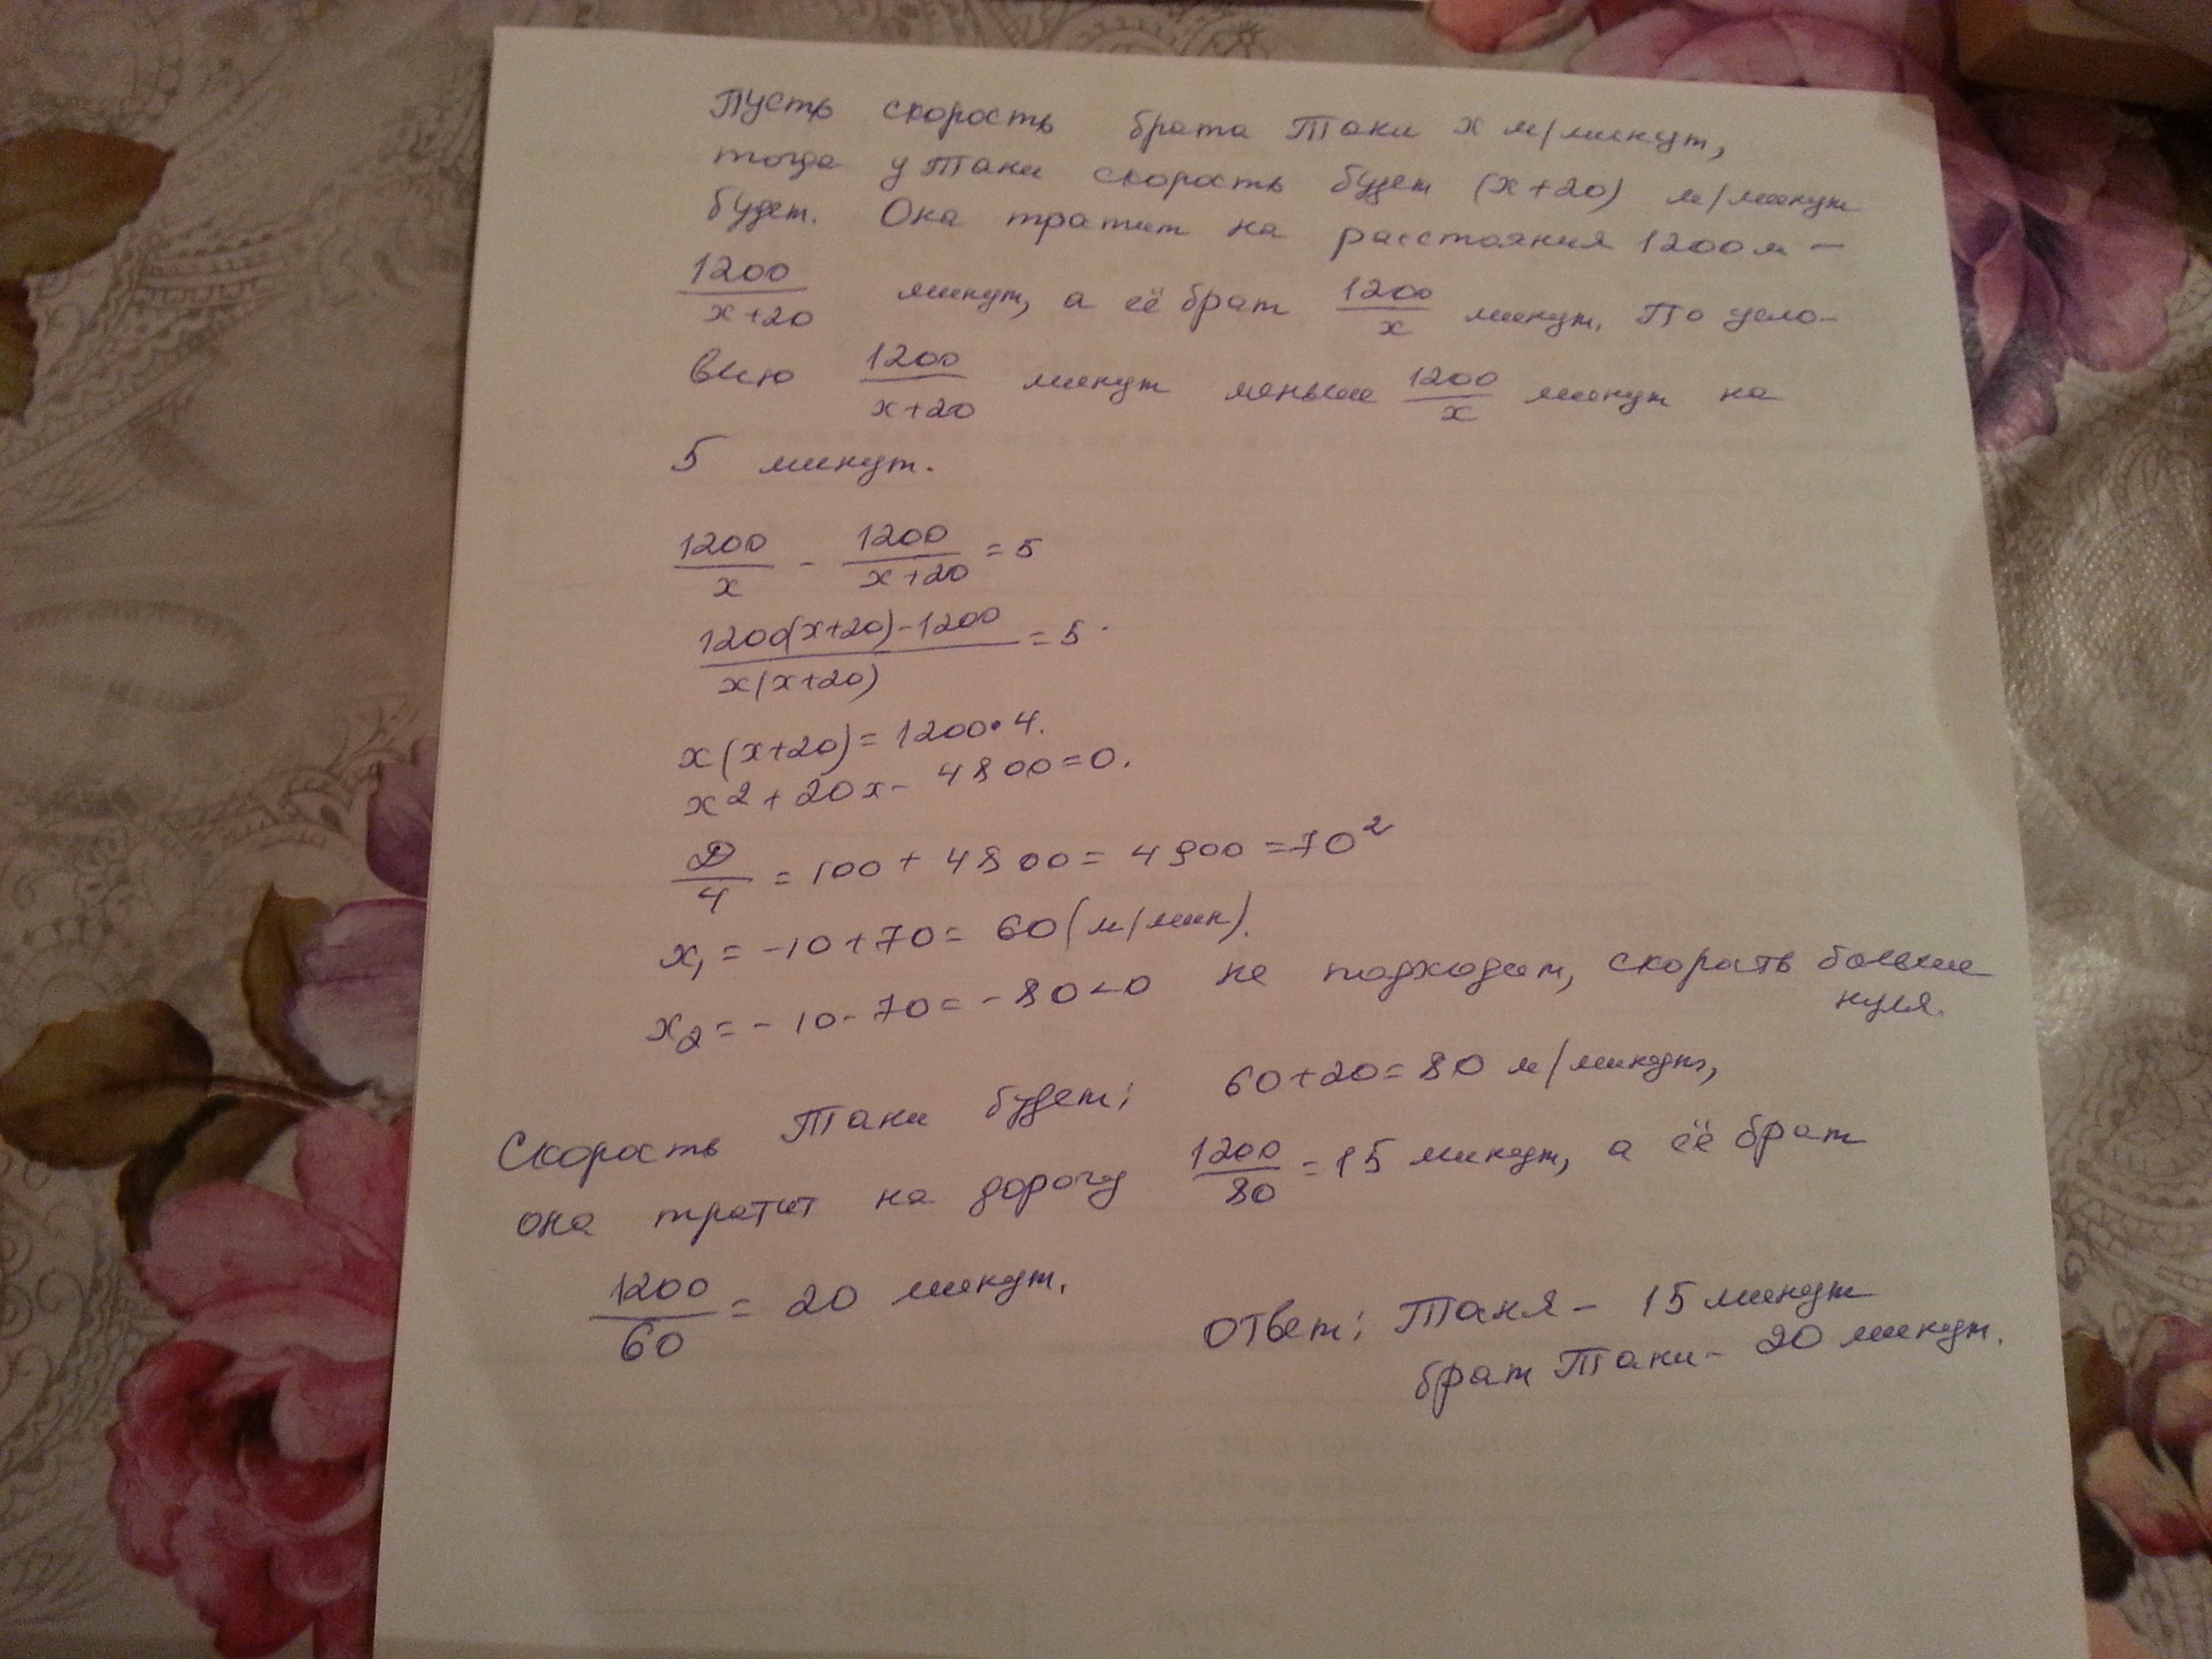 Пусть скорость брата Тани x м/минут,
тогда у Тани скорость будет (x+20) м/минут
будет. Она тратит на расстояния 1200 м –
1200/(x+20) минут, а её брат 1200/x минут. По усло-
вию 1200/(x+20) минут меньше 1200/x минут на
5 минут.
1200/x - 1200/(x+20) = 5
(1200(x+20)-1200)/(x(x+20)) = 5.
x(x+20) = 1200•4.
x² + 20x - 4800 = 0.
D/4 = 100 + 4800 = 4900 = 70²
x₁ = -10+70 = 60 (м/мин).
x₂ = -10-70 = -80<0 не подходит, скорать больше
нуля.
Скорость Тани будет: 60+20=80 м/минут,
она тратит на дорогу 1200/80 = 15 минут, а её брат
1200/60 = 20 минут.
Ответ: Таня – 15 минут
брат Тани – 20 минут.